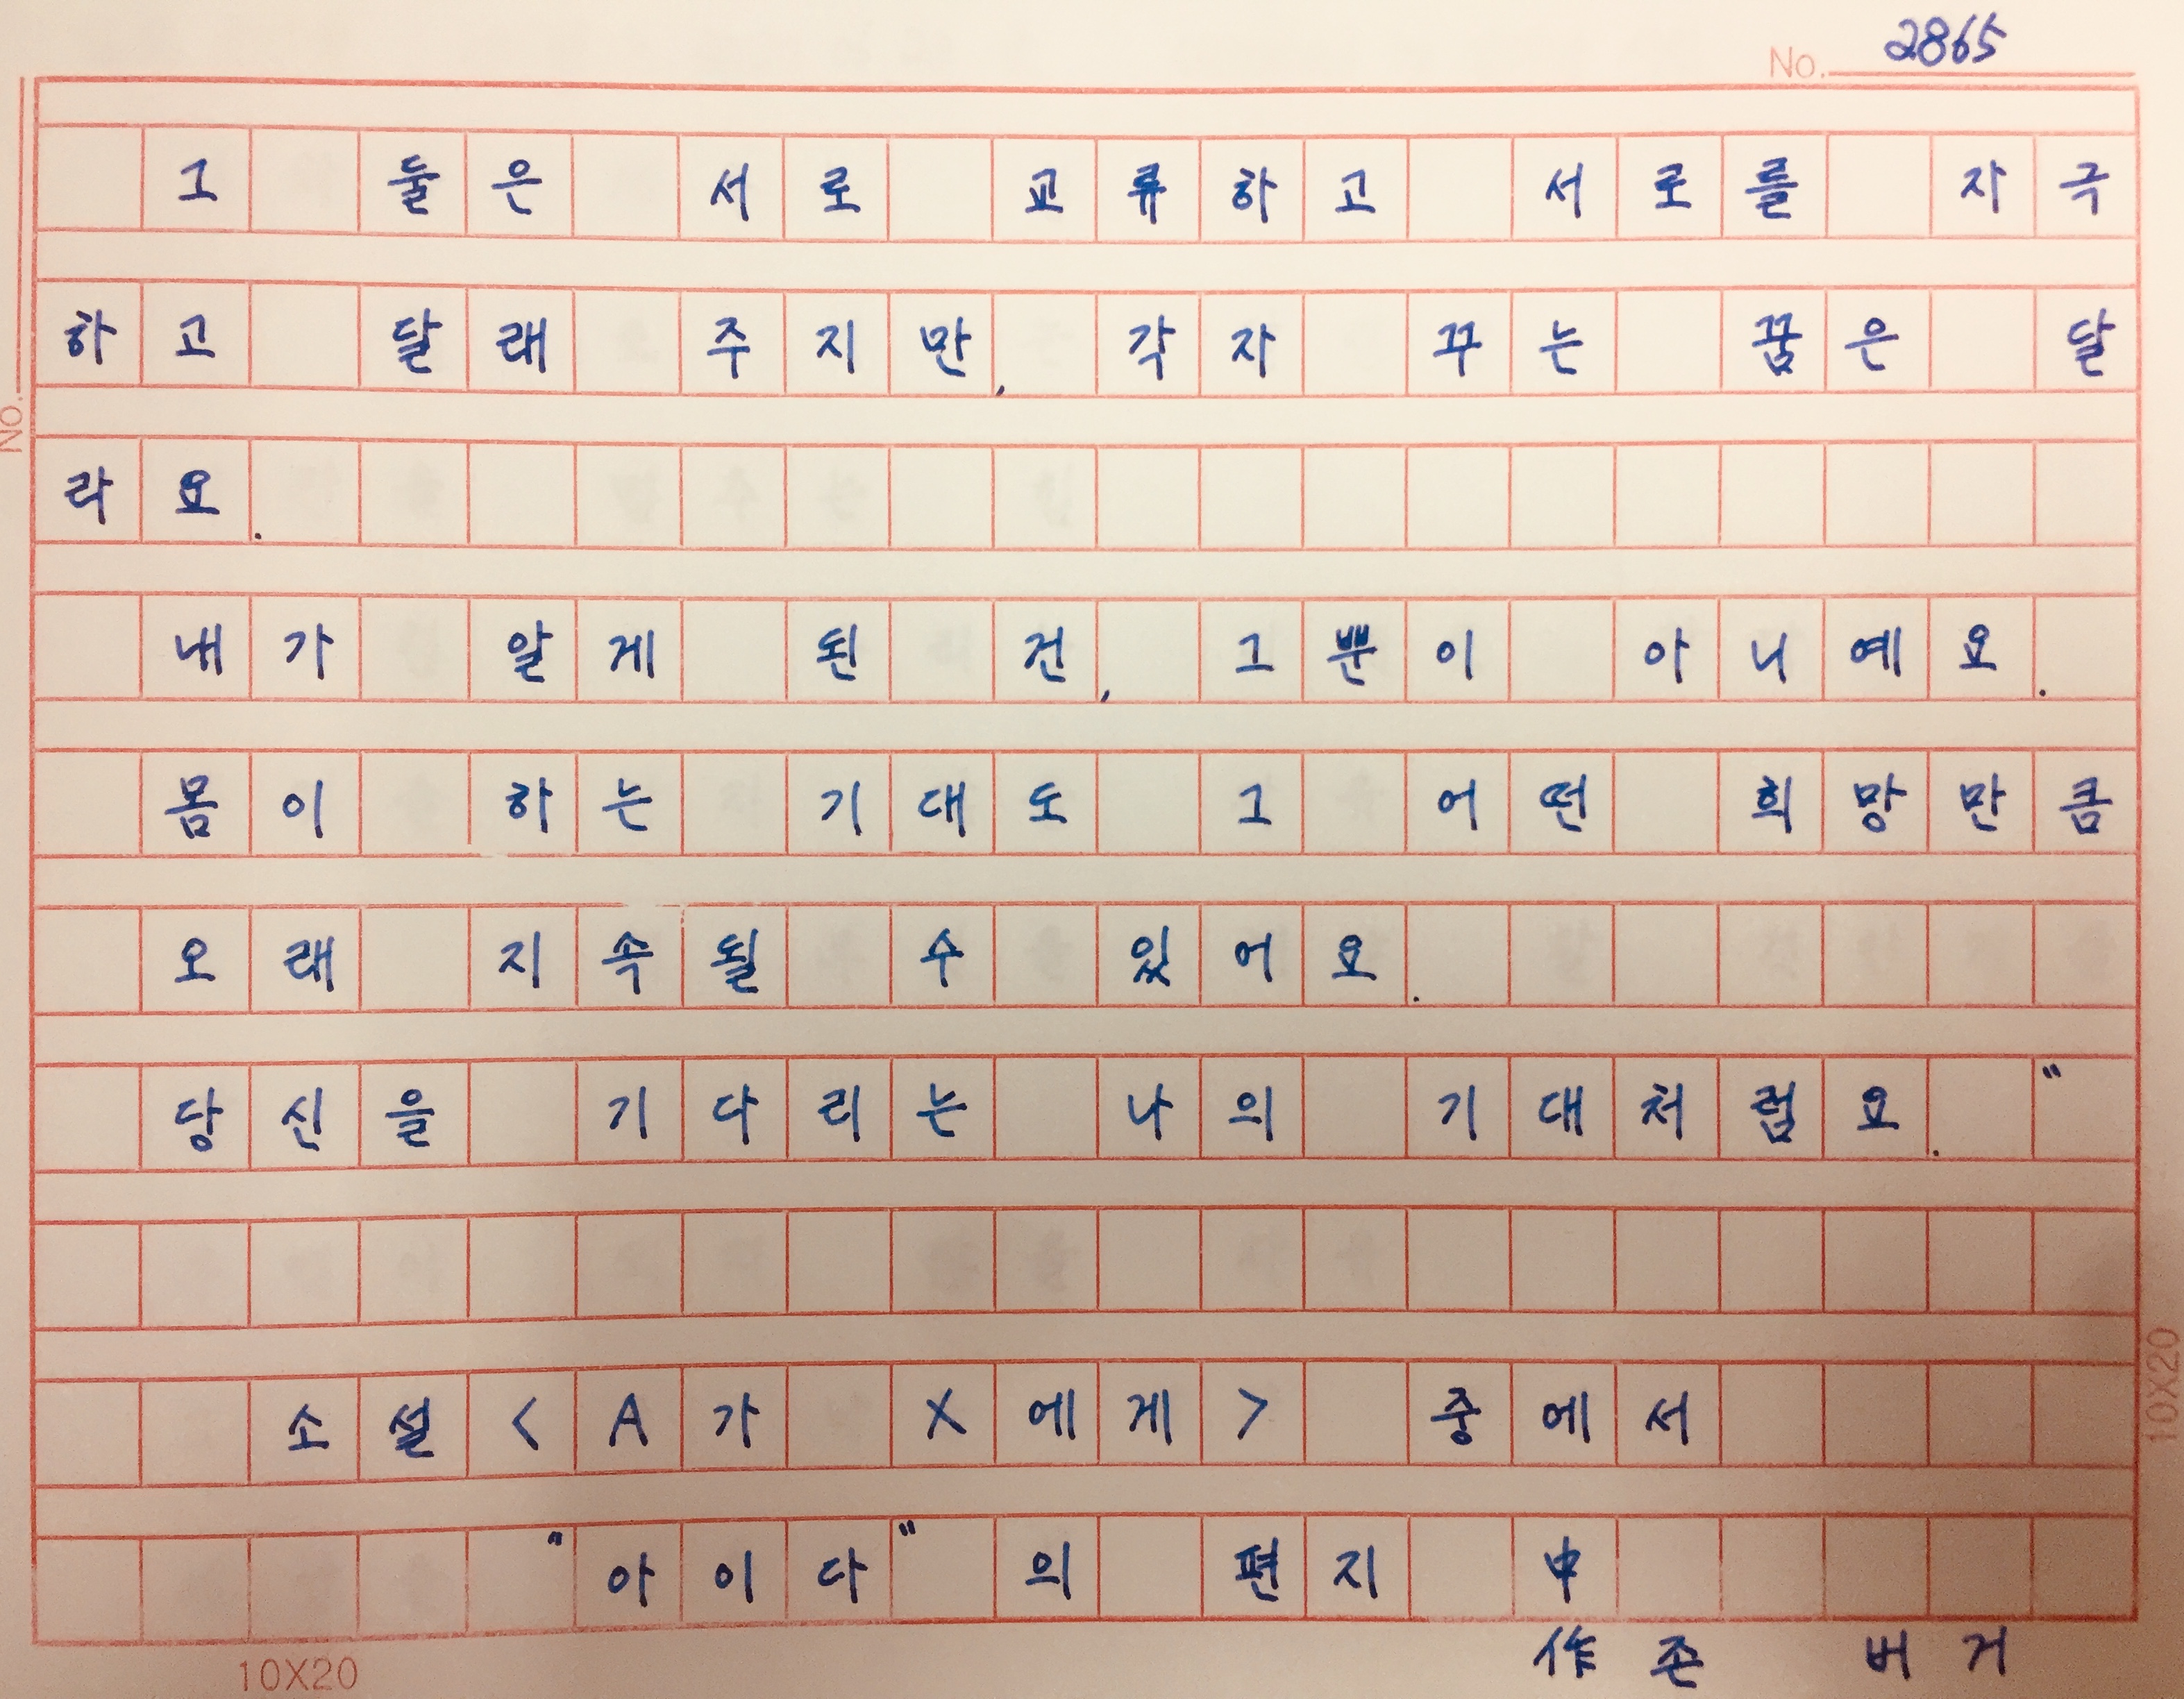 No. 2865
그 둘은 서로 교류하고 서로를 자극
하고 달래 주지만, 각자 꾸는 꿈은 달
라요.
내가 알게 된 건, 그뿐이 아니예요.
몸이 하는 기대도 그 어떤 희망만큼
오래 지속될 수 있어요.
당신을 기다리는 나의 기대처럼요."
소설<A가 X에게> 중에서
"아이다"의 편지 中
作 존 버거
No.
10X20
10X20